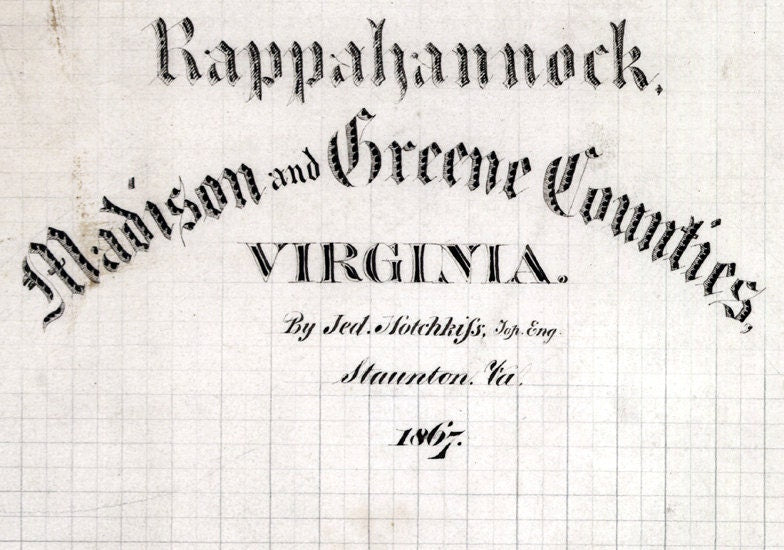 Rappahannock,
Madison and Greene Counties,
VIRGINIA.
By Jed. Hotchkiſs, Top. Eng.
Staunton. Va.
1867.